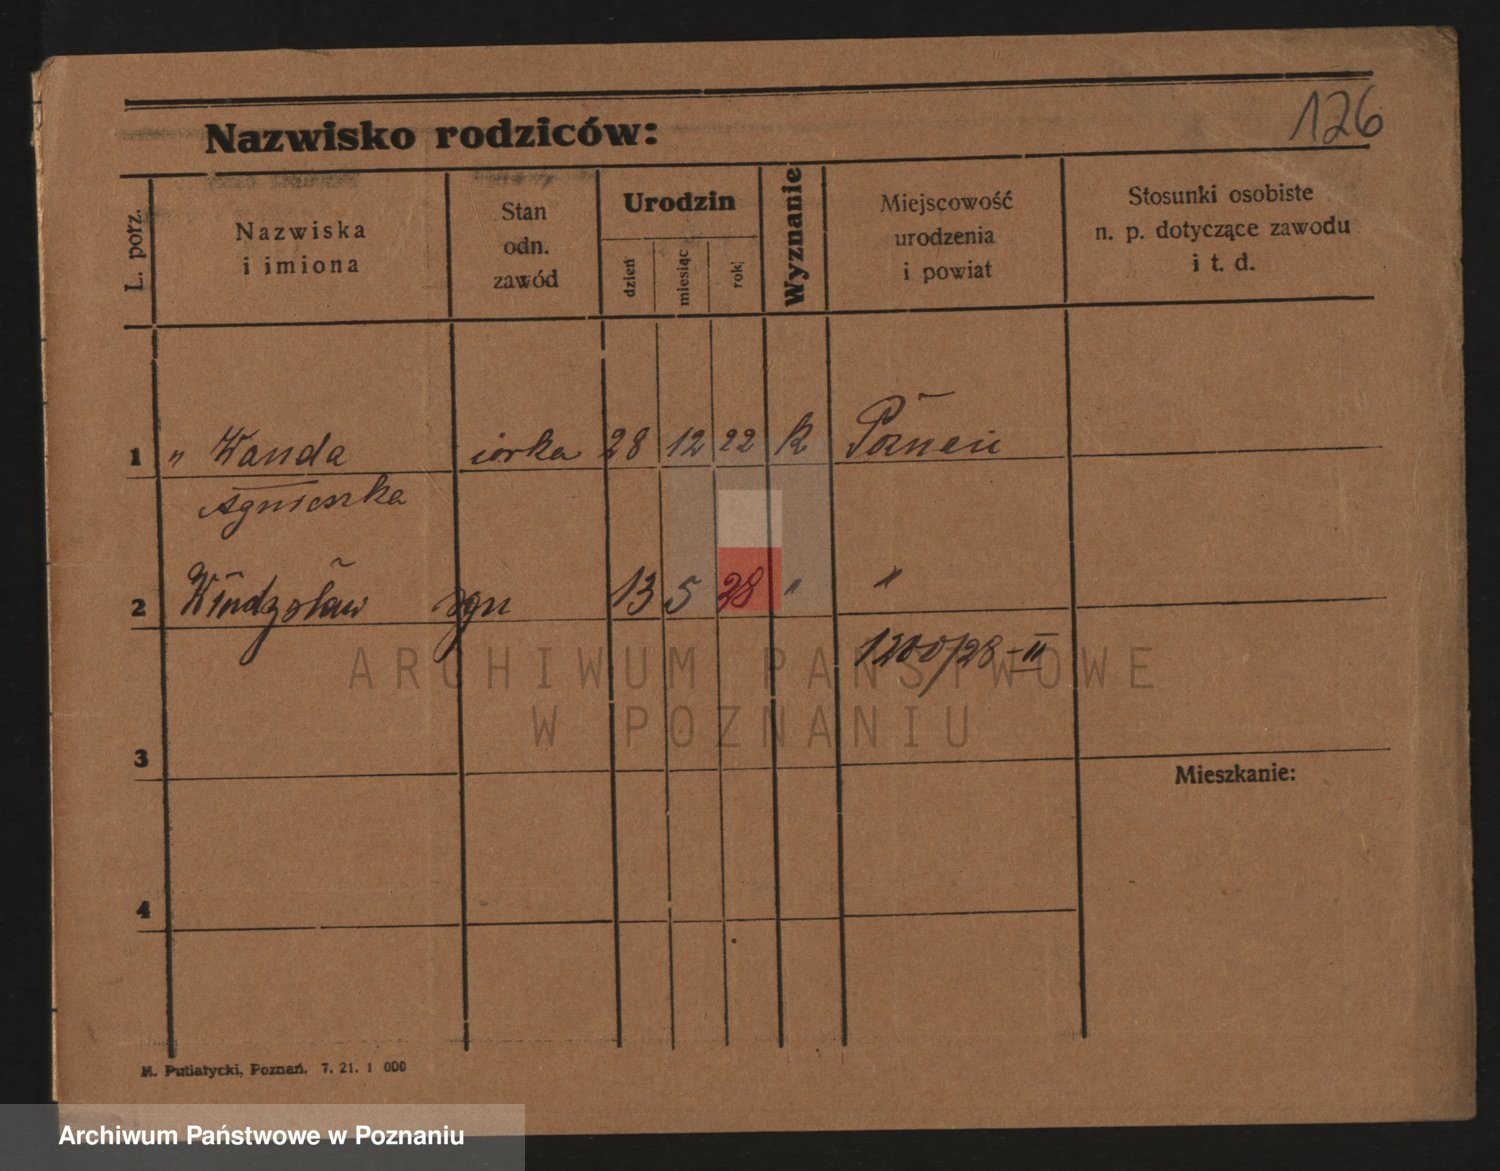 126
Nazwisko rodziców:
L. porz.
Nazwiska
i imiona
Stan
odn.
zawód
Urodzin
dzień
miesiąc
rok
Wyznanie
Miejscowość
urodzenia
i powiat
Stosunki osobiste
n. p. dotyczące zawodu
i t. d.
1 " Wanda córka 28 12 22 k Poznań
Agnieszka
2 Władysław syn 13 5 28 " "
1200/28-II
3
Mieszkanie:
4
M. Putiatycki, Poznań. 7. 21. 1 000
ARCHIWUM PAŃSTWOWE
W POZNANIU
Archiwum Państwowe w Poznaniu